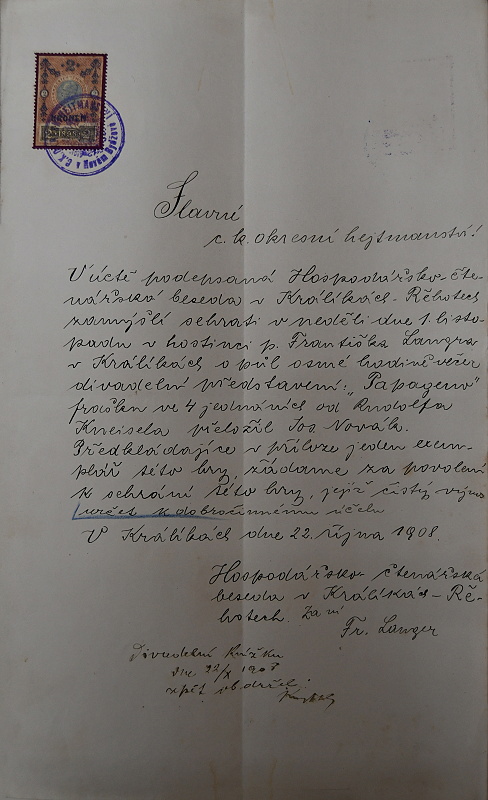 2
KRONEN
1898
v Novém Bydžově
Slavné
c. k. okresní hejtmanství!
V úctě podepsaná Hospodářsko-čte-
nářská beseda v Králíkách-Řehotech
zamýšlí sehrati v neděli dne 1. listo-
padu v hostinci p. Františka Langra
v Králíkách o půl osmé hodině večer
divadelní představení: "Papageno"
fraška ve 4 jednáních od Rudolfa
Kneisela přeložil Jos. Novák.
Předkládajíce v příloze jeden exem-
plář této hry žádáme za povolení
k sehrání této hry, jejíž čistý výnos
určen k dobročinnému účelu
V Králíkách dne 22. října 1908.
Hospodářsko-čtenářská
beseda v Králíkách-Ře-
hotech. Za ni
Fr. Langer
Divadelní knížku
dne 22/X 1908
zpět obdržel: